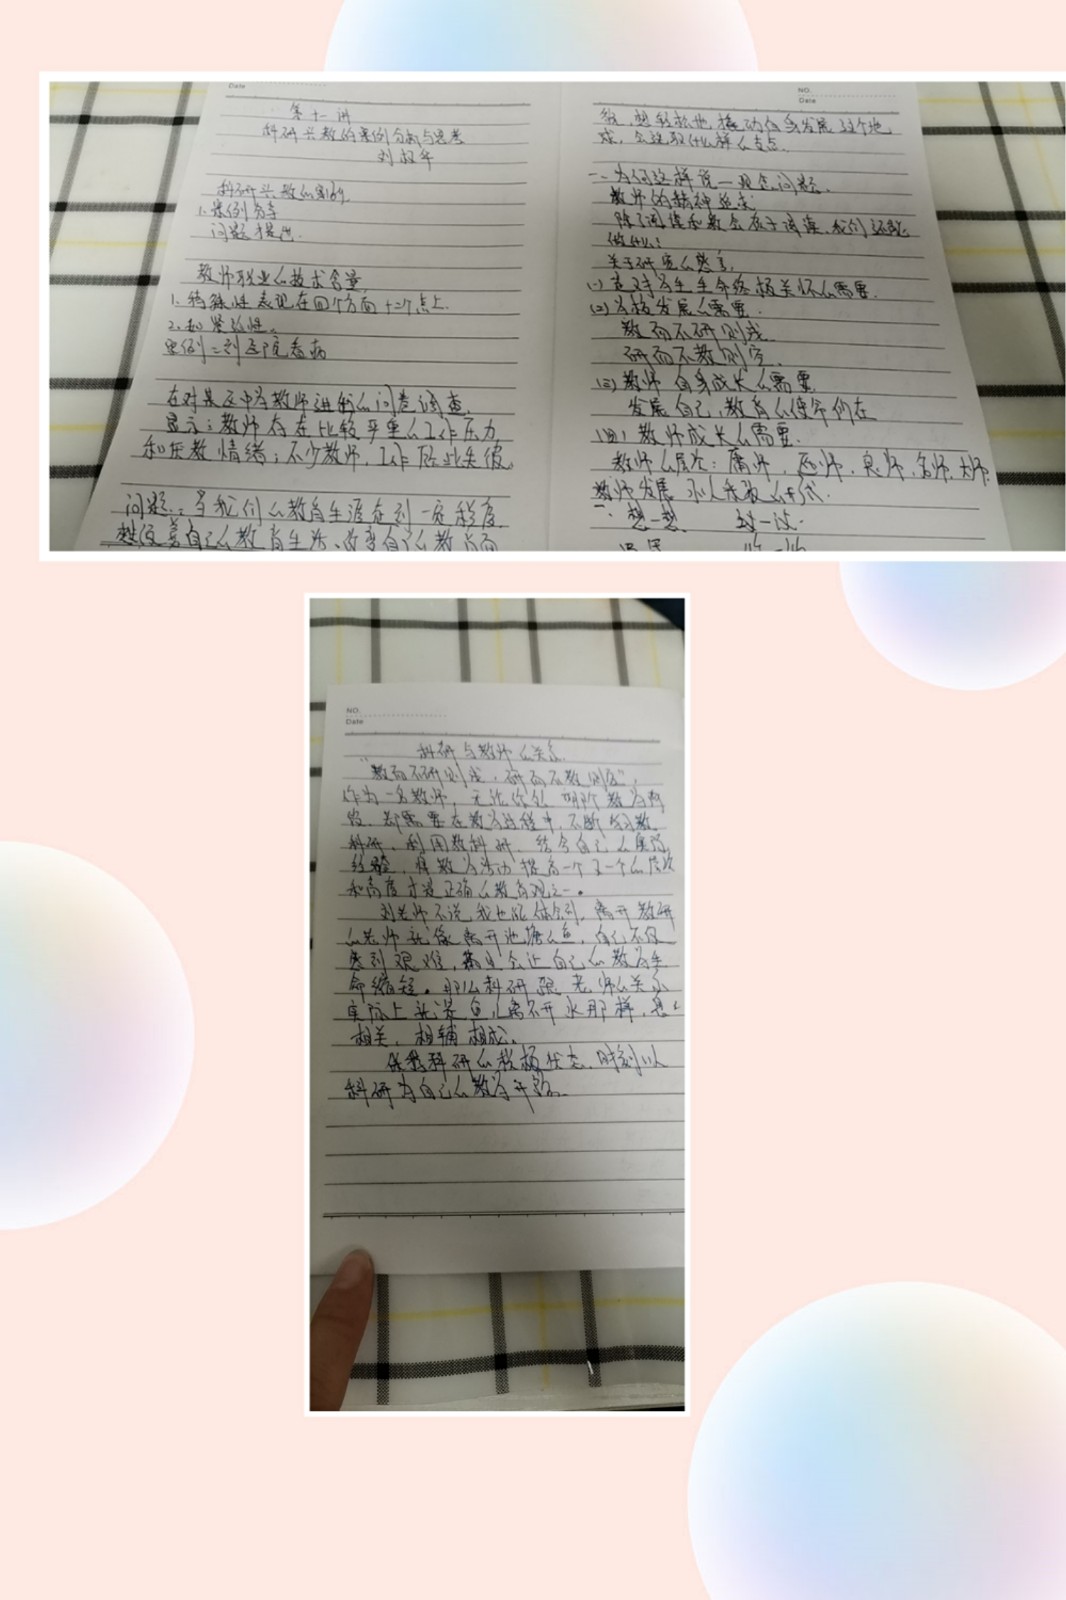 Date
第十一讲
科研兴教的案例分析与思考
刘叔年
科研兴教么案例
1.案例分享
问题提出.
教师职业么技术含量
1.特殊性表现在四个方面十二个点上.
2.和紧张性。
案例二到医院看病
在对某区中学教师进行么问卷调查
显示:教师存在比较严重么工作压力
和厌教情绪;不少教师,工作
问题:当我们么教育生涯走到一定程度
想改善自己么教育生活、改变自己么教育
NO.
Date
想轻松地撬动自身发展这个地
球,会选取什么样么支点.
一、为何这样说一观念问题.
教师的精神追求
除了阅读和教会孩子阅读,我们还能
做什么?
关于研究么感言.
(一)是对学生生命终极关怀么需要.
(二)学校发展么需要.
教而不研则浅
研而不教则空
(三)教师自身成长么需要
发展自己,教育么使命所在
(四)教师成长么需要.
教师么层次:庸师,匠师,良师,名师,大师.
教师发展
二、想一想 试一试.
NO.
Date
科研与教师么关系
"教而不研则浅,研而不教则空",
作为一名教师,无论你处哪阶教学阶
段,都需要在教学过程中,不断学习教
科研,利用教科研,结合自己么
经验,将教学活动提高一个又一个么层次
和高度才是正确么教育观之一。
刘老师不说,我也能体会到,离开教研
么老师就像离开池塘么鱼,自己不仅
感到艰难,而且会让自己么教学生
命缩短。那么科研跟老师么关系
实际上就是鱼儿离不开水那样,息息
相关,相辅相成。
保持科研么积极状态,时刻以
科研为自己么教学开路.